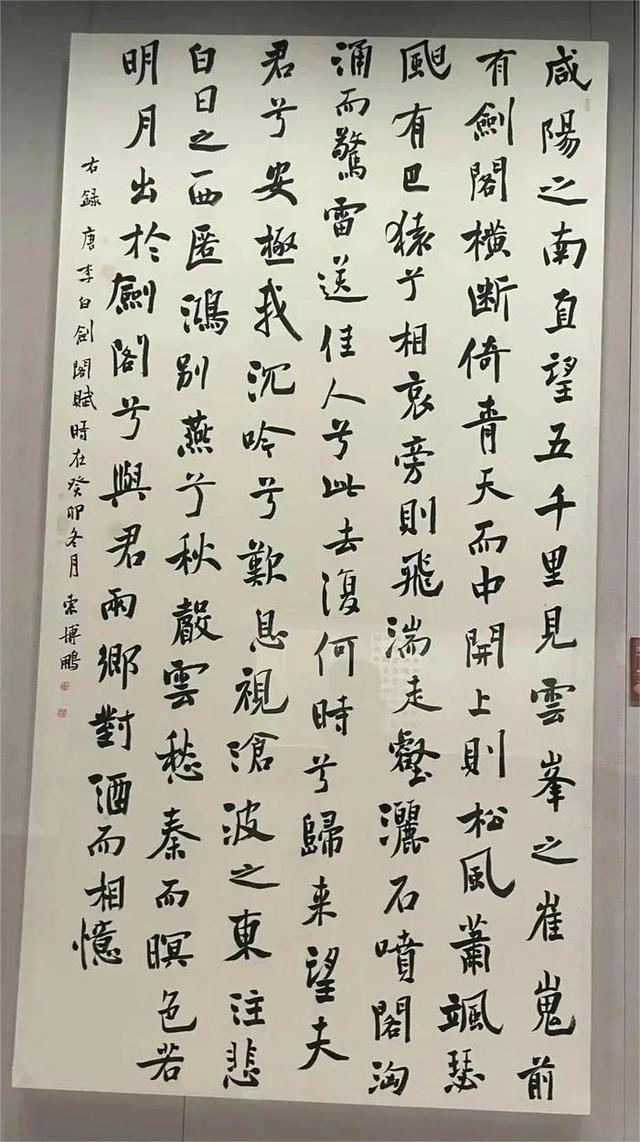 咸陽之南直望五千里見雲峯之崔嵬前
有劍閣橫斷倚青天而中開上則松風蕭颯瑟
颶有巴猿兮相哀旁則飛湍走壑灑石噴閣洶
涌而驚雷送佳人兮此去復何時兮歸来望夫
君兮安極我沉吟兮歎息視滄波之東注悲
白日之西匿鴻別燕兮秋聲雲愁秦而暝色若
明月出於劍閣兮與君兩鄉對酒而相憶
右録唐李白劍閣賦時在癸卯冬月索博鵬